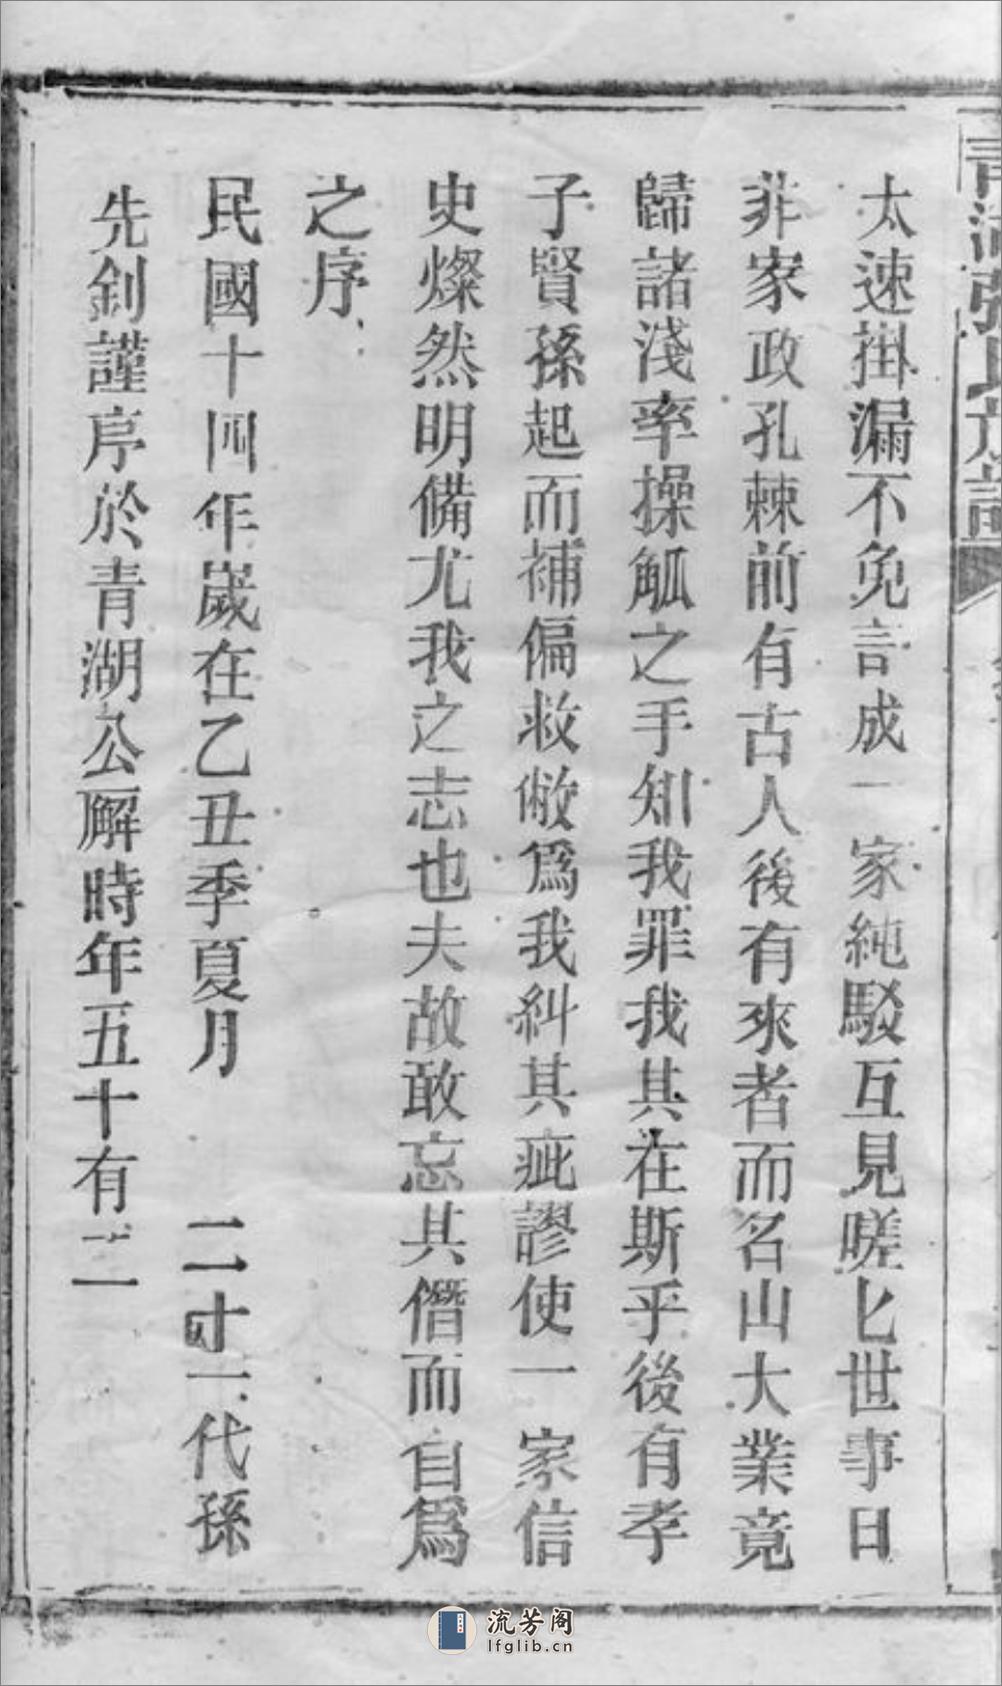 青湖張氏族譜
太速掛漏不免言成一家純駁互見嗟匕世事日
非家政孔棘前有古人後有來者而名山大業竟
歸諸淺率操觚之手知我罪我其在斯乎後有孝
子賢孫起而補偏救敝爲我糾其疵謬使一家信
史燦然明備尤我之志也夫故敢忘其僭而自爲
之序
民國十四年歲在乙丑季夏月 二十一代孫
先釗謹序於青湖公廨時年五十有二
流芳阁
lfglib.cn